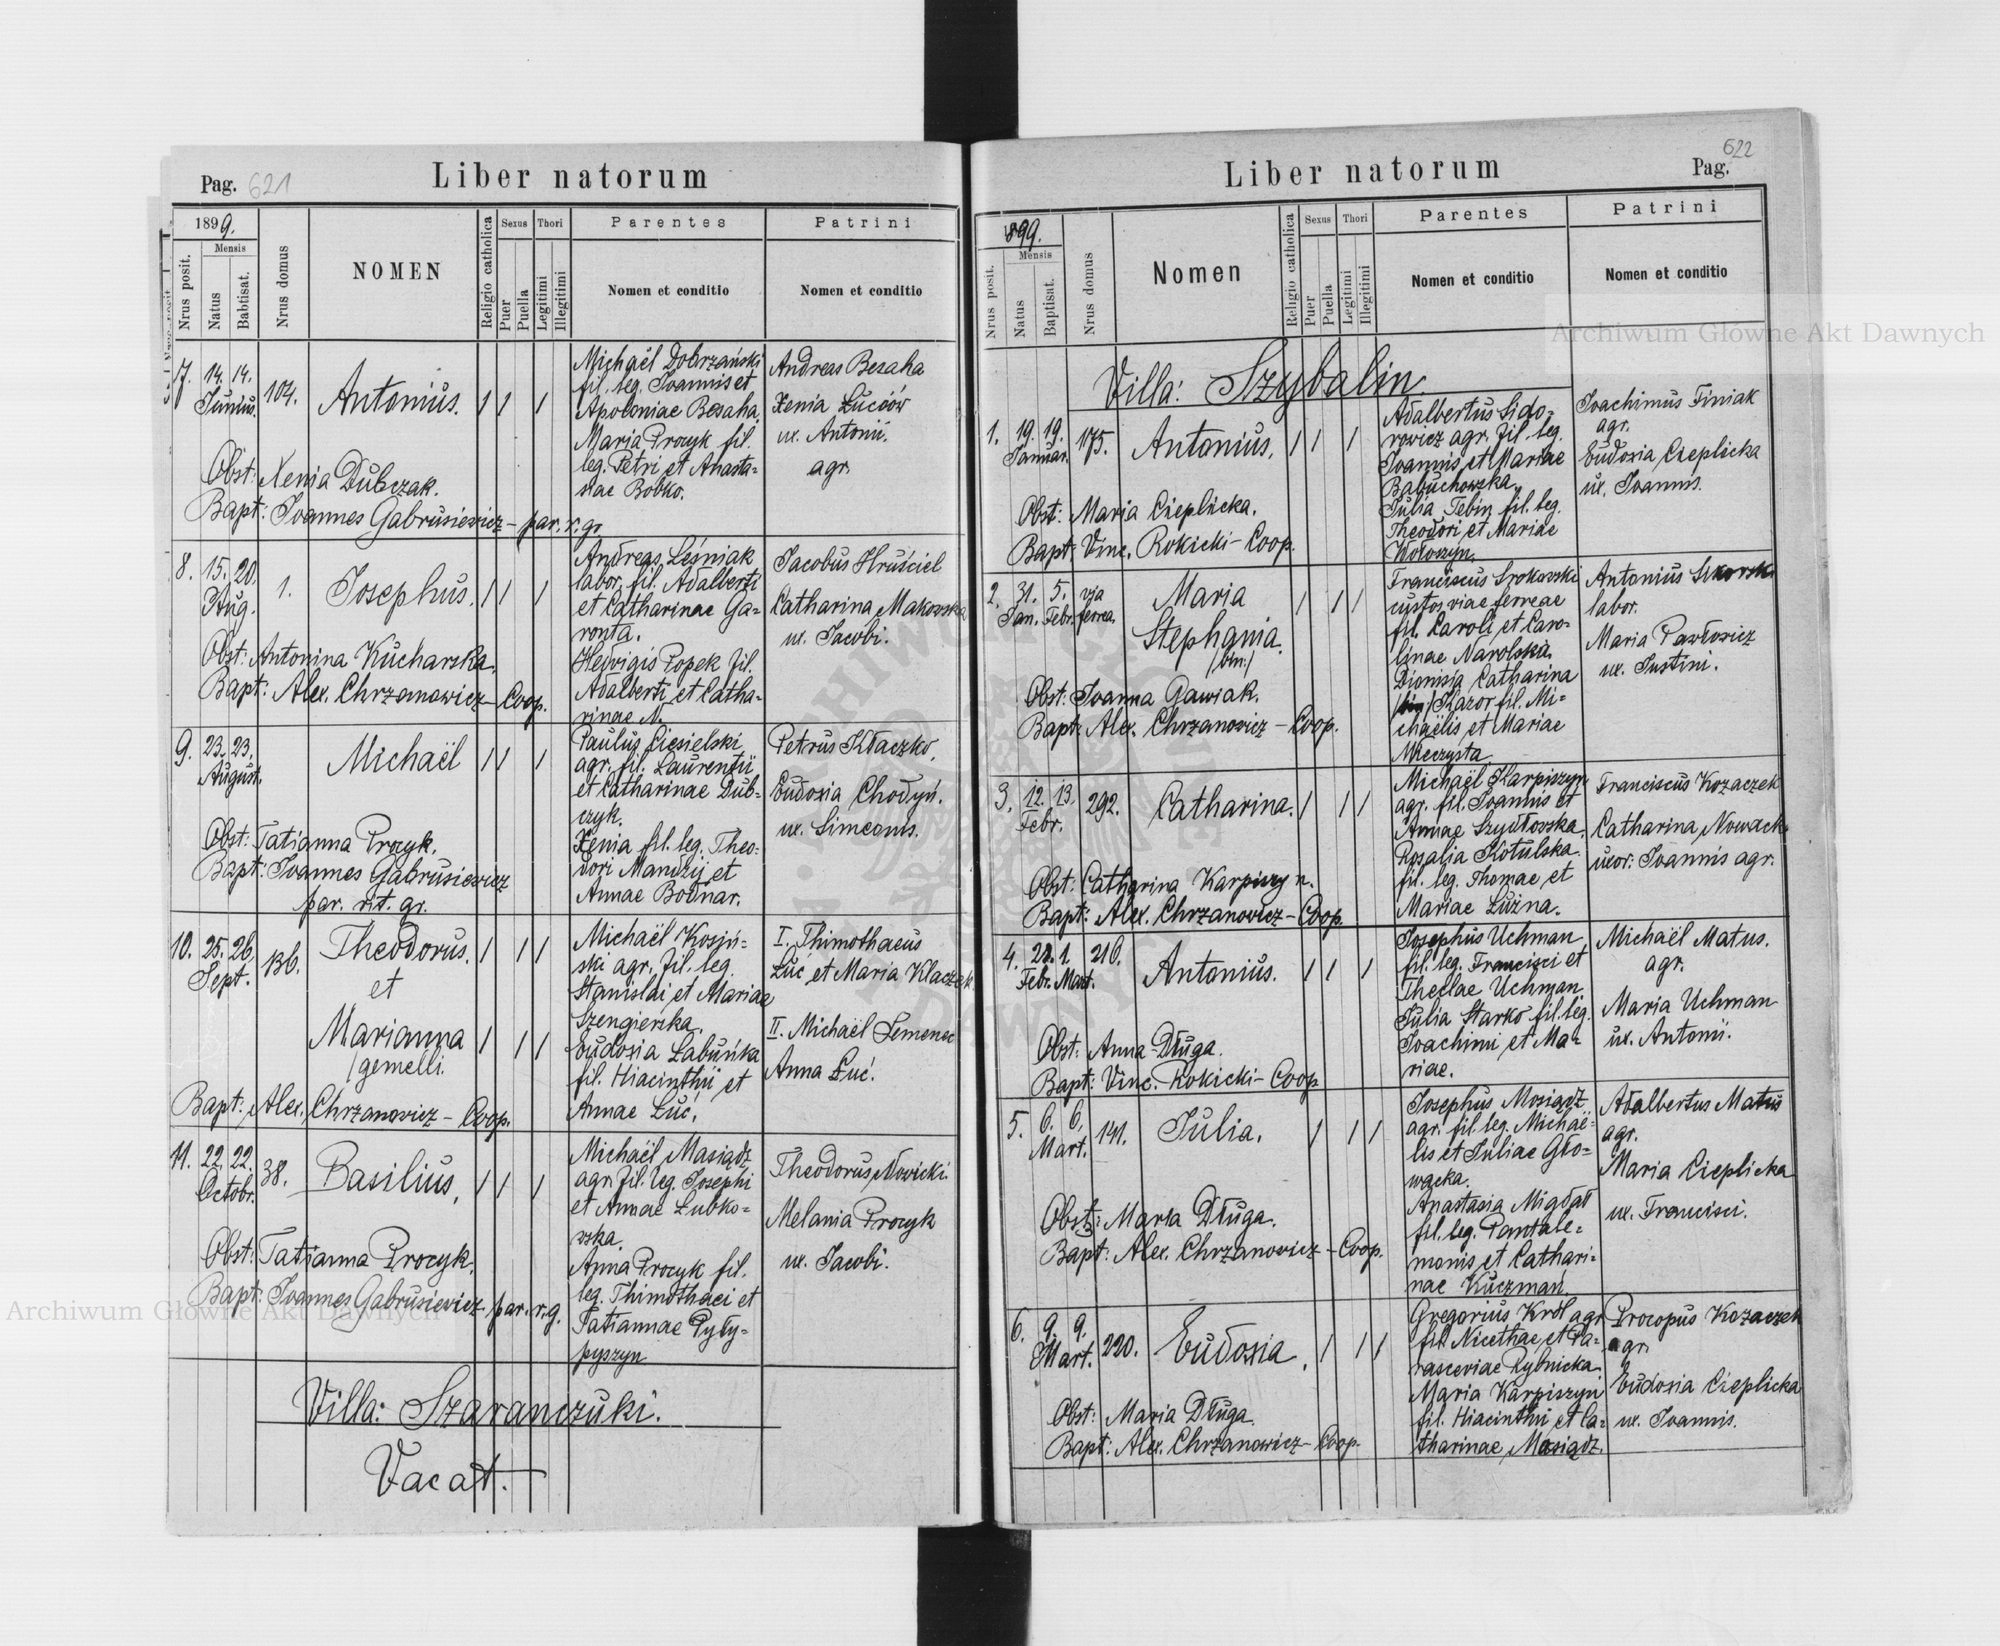 Pag. 621
Liber natorum
1899.
Nrus posit.
Mensis
Natus
Babtisat.
Nrus domus
NOMEN
Religio catholica
Sexus
Puer
Puella
Thori
Legitimi
Illegitimi
Parentes
Nomen et conditio
Patrini
Nomen et conditio
7. 14. 14. Junius. 104. Antonius.
Michaël Dobrzański
fil. leg. Joannis et
Apoloniae Besaha.
Maria Procyk fil.
leg. Petri et Anasta-
siae Bobko.
Andreas Besaha
Xenia Łuciów
ux. Antonii.
agr.
Obst: Xenia Dubczak.
Bapt: Joannes Gabrusiewicz – par. r. gr
8. 15. 20. Aug. 1. Josephus.
Andreas Leśniak
labor. fil. Adalberti
et Catharinae Ga-
ronta.
Hedvigis Popek fil.
Adalberti et Catha-
rinae N.
Jacobus Hruściel
Catharina Makowska
ux. Jacobi.
Obst: Antonina Kucharska.
Bapt: Alex. Chrzanowicz – Coop.
9. 23. 23. August. Michaël
Paulus Ciesielski
agr. fil. Laurentii
et Catharinae Dub-
czyk.
Xenia fil. leg. Theo-
dori Mandzij et
Annae Bodnar.
Petrus Kłaczko.
Eudoxia Chodyń.
ux. Simeonis.
Obst: Tatianna Procyk.
Bapt: Joannes Gabrusiewicz
par. rit. gr.
10. 25. 26. Sept. 136. Theodorus.
et
Marianna
/gemelli.
Michaël Kosiń-
ski agr. fil. leg.
Stanislai et Mariae
Szengierska.
Eudoxia Łabuńka
fil. Hiacinthii et
Annae Łuć.
I. Thimothaeus
Łuć et Maria Klaczek
II. Michaël Semenec
Anna Łuć.
Bapt: Alex. Chrzanowicz – Coop.
11. 22. 22. Octobr. 38. Basilius.
Michaël Masiądz
agr. fil. leg. Josephi
et Annae Łubko-
wska.
Anna Procyk fil.
leg. Thimothaei et
Tatiannae Pyły-
pyszyn
Theodorus Nowicki
Melania Procyk
ux. Jacobi.
Obst: Tatianna Procyk.
Bapt: Joannes Gabrusiewicz par. r. g.
Villa: Szaranczuki.
Vacat.
Pag. 622
Liber natorum
1899.
Nrus posit.
Mensis
Natus
Baptisat.
Nrus domus
Nomen
Religio catholica
Sexus
Puer
Puella
Thori
Legitimi
Illegitimi
Parentes
Nomen et conditio
Patrini
Nomen et conditio
Villa: Szybalin
1. 19. 19. Januar. 175. Antonius.
Adalbertus Sido-
rowicz agr. fil. leg.
Joannis et Mariae
Babuchowska.
Julia Tebin fil. leg.
Theodori et Mariae
Wołoszyn.
Joachimus Finiak
agr.
Eudoxia Cieplicka
ux. Joannis.
Obst: Maria Cieplicka.
Bapt: Vinc. Rokicki – Coop.
2. 31. Jan. 5. Febr. via ferrea. Maria
Stephania.
/bin:/
Franciscus Srokowski
custos viae ferreae
fil. Caroli et Caro-
linae Narolska
Dionisia Catharina
/bin/ Kazor fil. Mi-
chaëlis et Mariae
Mieczysta.
Antonius Sikorski
labor.
Maria Pawłowicz
ux. Justini.
Obst: Joanna Gawiak.
Bapt: Alex. Chrzanowicz – Coop.
3. 12. 13. Febr. 292. Catharina.
Michaël Karpiszyn
agr. fil. Joannis et
Annae Szydłowska.
Rosalia Kotulska
fil. leg. Thomae et
Mariae Luzna.
Franciscus Kozaczek
Catharina Nowack
uxor: Joannis agr.
Obst: Catharina Karpiszyn.
Bapt: Alex. Chrzanowicz – Coop.
4. 28. Febr. 1. Mart. 216. Antonius.
Josephus Uchman
fil. leg. Francisci et
Theclae Uchman.
Julia Starko fil. leg.
Joachimi et Ma-
riae.
Michaël Matus.
agr.
Maria Uchman
ux. Antonii.
Obst: Anna Długa.
Bapt: Vinc. Rokicki – Coop
5. 6. 6. Mart. 141. Julia.
Josephus Mosiądz
agr. fil. leg. Michaë-
lis et Juliae Gło-
wacka.
Anastasia Migdał
fil. leg. Pantale-
monis et Cathari-
nae Kuczman.
Adalbertus Matus
agr.
Maria Cieplicka
ux. Francisci.
Obst: Maria Długa.
Bapt: Alex. Chrzanowicz – Coop.
6. 9. 9. Mart. 220. Eudoxia.
Gregorius Król agr.
fil. Nicethae et Pa-
rasceviae Rybnicka.
Maria Karpiszyn
fil. Hiacinthii et Ca-
tharinae Mosiądz.
Procopus Kozaczek
agr.
Eudoxia Cieplicka
ux. Joannis.
Obst: Maria Długa.
Bapt: Alex. Chrzanowicz – Coop.
Archiwum Główne Akt Dawnych
Archiwum Główne Akt Dawnych